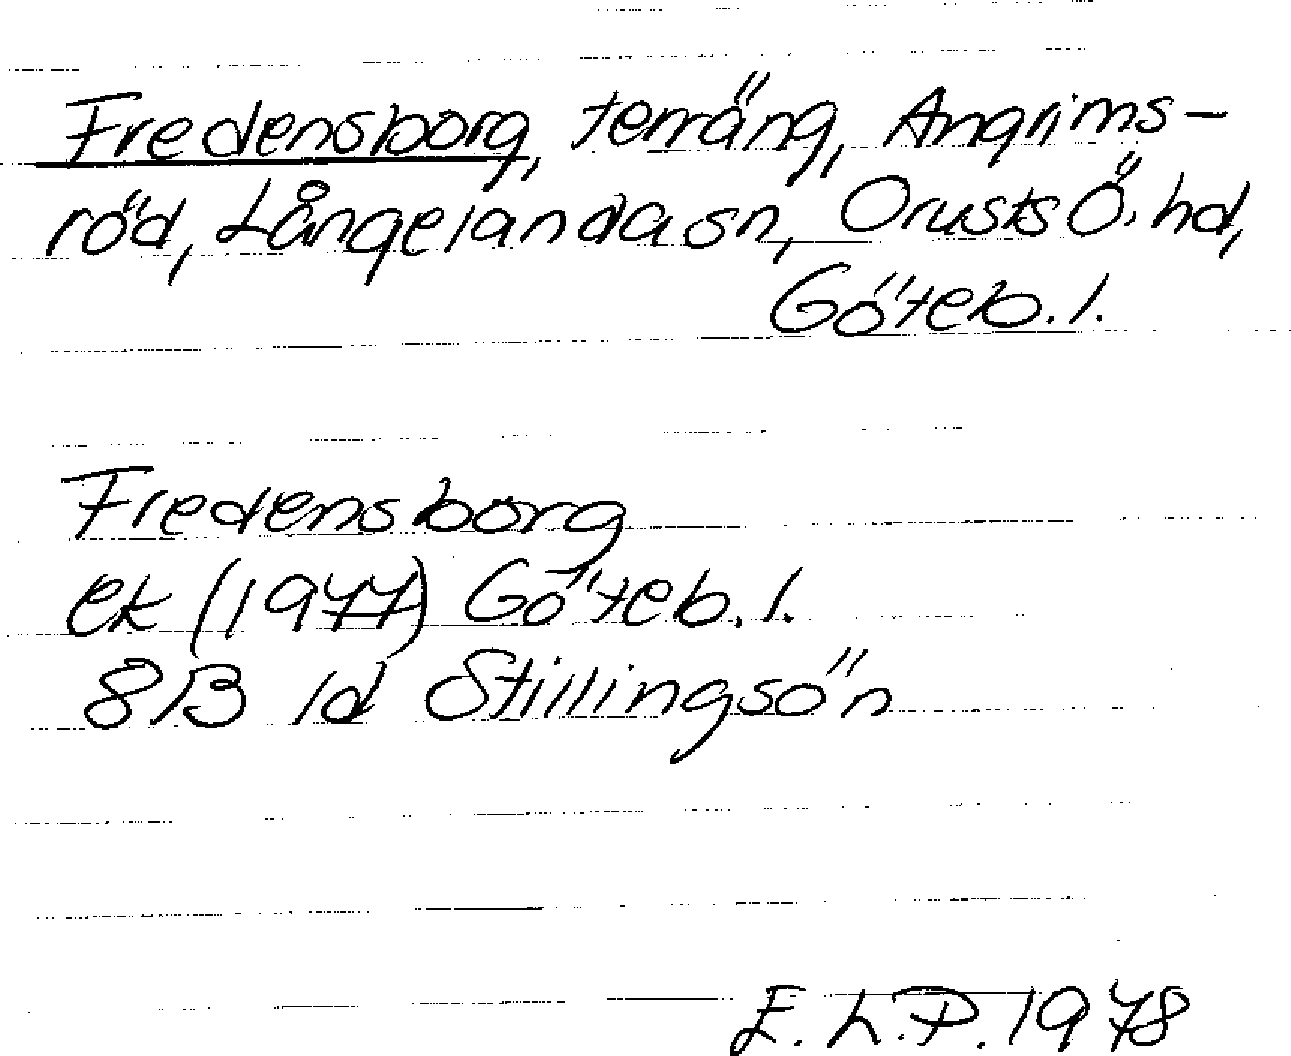 Fredensborg, terräng, Angrims-
röd, Långelanda sn, Orusts Ö. hd,
Göteb. l.
Fredensborg
ek (1977) Göteb. l.
8B 1d Stillingsön
E. L. P. 1978